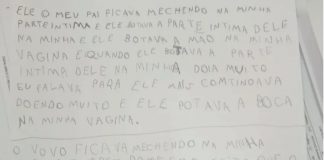 - ELE O MEU PAI FICAVA MECHENDO NA MINHA
PARTE INTIMA E ELE BOTAVA A PARTE INTIMA DELE
NA MINHA E ELE BOTAVA A MÃO NA MINHA
VAGINA E QUANDO ELE BOTAVA A PARTE
INTIMA DELE NA MINHA DOIA MUITO
EU FALAVA PARA ELE MAIS COMTINOAVA
DOENDO MUITO E ELE BOTAVA A BOCA
NA MINHA VAGINA.
O VOVO FICAVA MECHENDO NA MINHA